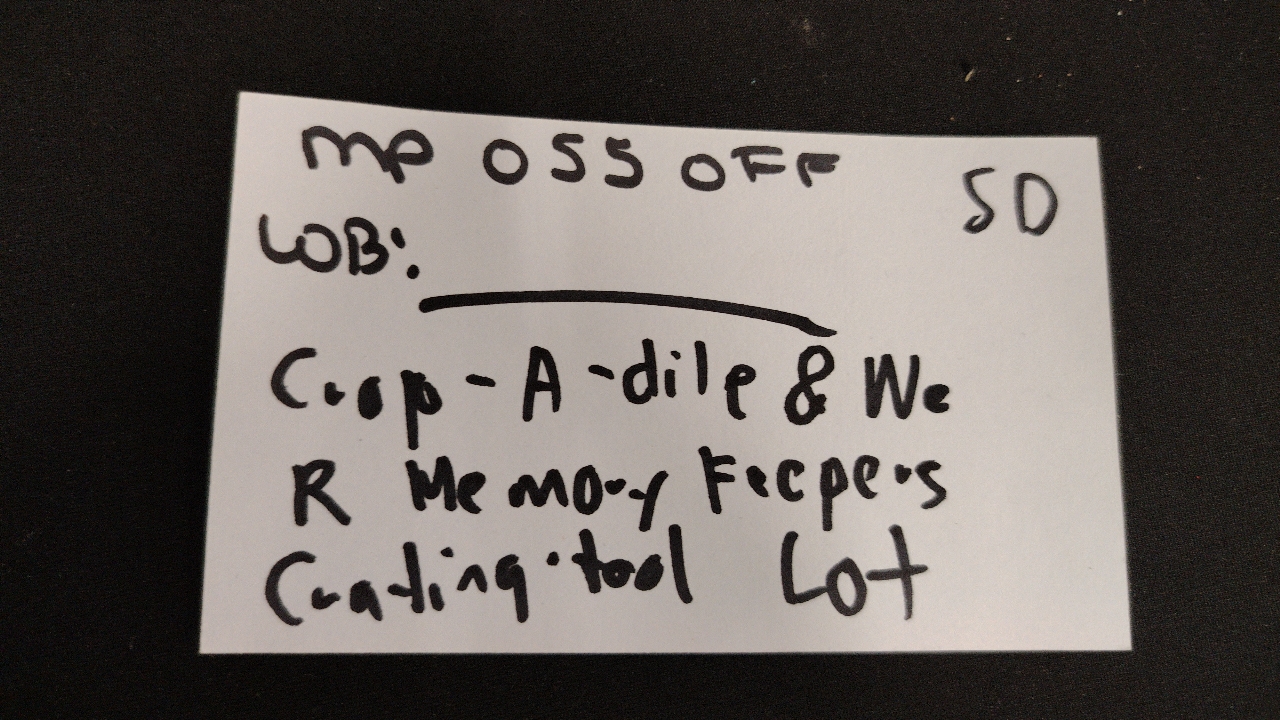 MP OSS OFF SD
LOB:
Crop-A-dile & We
R Memory Keepers
Crating tool Lot